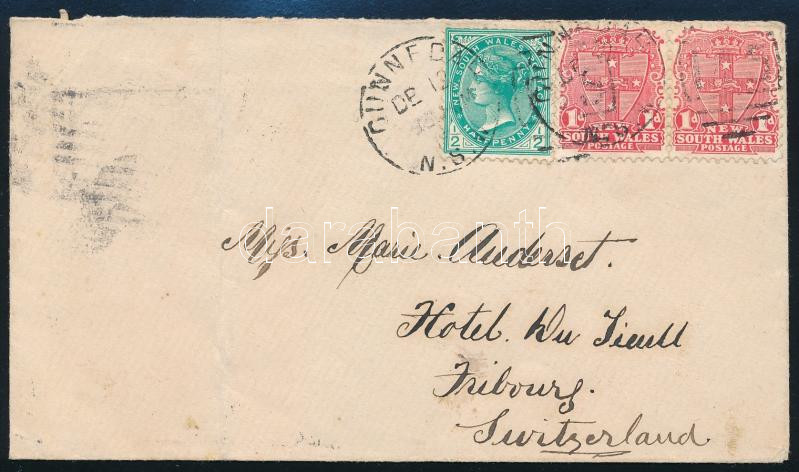 GUNNEDAH
DE 13
N.S.
NEW SOUTH WALES
HALFPENNY
1/2 1/2
1d 1d
NEW
SOUTH WALES
POSTAGE
1d 1d
NEW
SOUTH WALES
POSTAGE
darabanth
Miss. Marie Anderset.
Hotel. Du
Fribourg.
Switzerland.